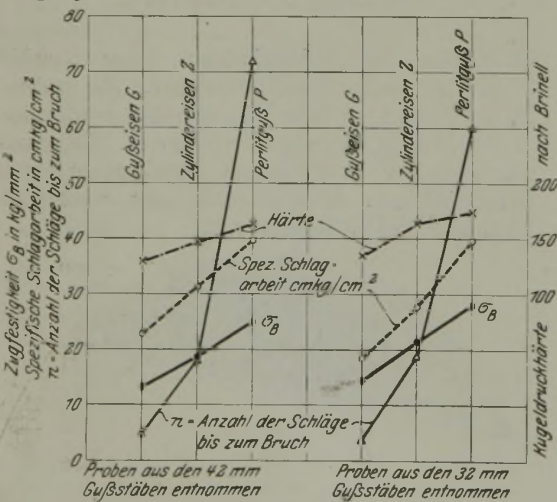 Zugfestigkeit σB in kg/mm²
Spezifische Schlagarbeit in cmkg/cm²
n = Anzahl der Schläge bis zum Bruch
80
70
60
50
40
30
20
10
0
Gußeisen G
Zylindereisen Z
Perlitguß P
Gußeisen G
Zylindereisen Z
Perlitguß P
Härte
Spez. Schlag-
arbeit cmkg/cm²
σB
σB
n = Anzahl der Schläge
bis zum Bruch
200
150
100
Kugeldruckhärte nach Brinell
Proben aus den 42 mm
Gußstäben entnommen
Proben aus den 32 mm
Gußstäben entnommen